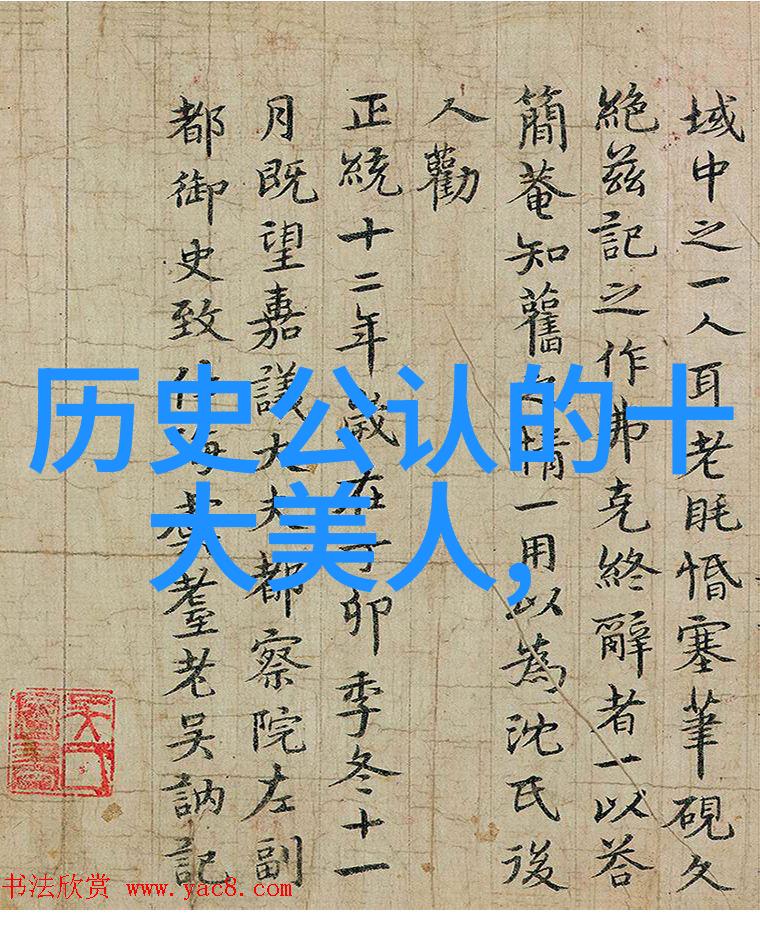 域中之一人耳老眊惛塞筆硯久
絶茲記之作弗克終辭者一以荅
簡菴知舊之情一用以為沈氏後
人勸
正統十二年歲在丁卯季冬十一
月既望嘉議大夫都察院左副
都御史致仕海虞耋老吳訥記
历史公认的十
大美人,
书法欣赏 www.yac8.com